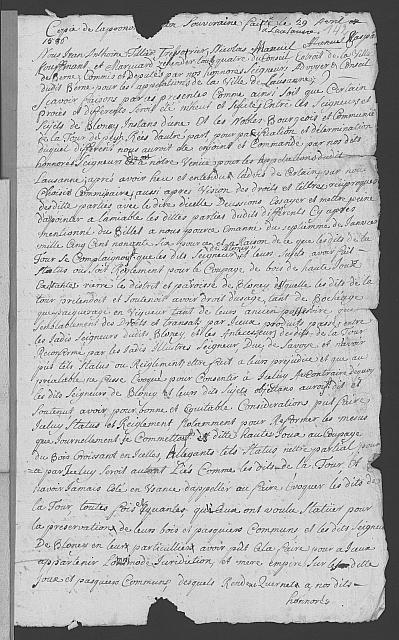 Copie de la prononciation Souveraine faitte le 29 Avril
1596 a Lausanne
Nous Jean Anthoine Tiller Tresorier, Nicolas Manuel
et Marquard Zehender tous quatre du Conseil Estroit de la Ville
de Berne Commis et Deputés par nos honnorés Seigneurs L'advoyer et Conseil
dudit Berne pour les appelations de la Ville de Lausanne
Scavoir façons par ces presentes Comme ainsi Soit que Certain
Procés et differents Soit esté meut et Suscité entre les Seigneurs et
Sujets de Bloney Instans d'une Et les Nobles Bourgeois et Communauté
de la Tour de Peyls Rées d'autre part, pour pacification et determination
duquel different nous auroit esté enjoint et Commandé par nos dits
honnorés Seigneurs a nôtre Venüe pour les Appelations dudit
Lausanne, aprés avoir heu et entendu l'advis de Certain par nous
Choisis Commissaire, aussi aprés Vision des droits et tiltres reciproques
desdittes parties avec le dire d'icelle Deussions Essayer et mettre peine
d'apointer a l'amiable les dittes parties dudit differents Cy aprés
mentionné Du Billet a nous pource emanné du septiemme de Janvier
mille Cinq Cent nonante Six apparoit et a Raison de ce que les dits de la
Tour Se Complaignoyent que les dits Seigneurs de Bloney et leurs Sujets avoit fait
Status ou Soit Reglement pour le Coupage de bois de haute Joux
riere le distroit et parroisse de Bloney esquelle les dits de la
tour pretendoit et Soutenoit avoir droit d'usage tant de Bochéage
que pasquerage en Vigueur tant de leurs ancien possessoire que
Semblablement des Droits et transact par Iceux produits passés entre
les Jadis Seigneurs dudits Bloney et les Antecesseurs desdits de la Tour
Reconfermé par les Jadis Illustres Seigneur Duc de Savoye et n'avoir
peut tels Status ou Reglements estre fait a leurs prejudice et que au
prealable ne fusse Evoqué pour Consentir à Icelluy Au Contraire duquoy
les dits Seigneurs de Bloney et leurs dits Sujets disoit et
Soutenoit avoir pour bonne et équitable Considerations peut faire
Iceluy Status et Reglement Notamment pour Reformer les mesus
que Journellement se Commettoit és dittes hautes Joux au Coupage
du Bois Croissant en Icelles, Allegants tels Status n'estre partial pour
ce par Icelluy Seroit autant Liés Comme les dits de la Tour Et
n'avoir Jamais esté en Usance d'appeller au faire Evoquer les dits de
la Tour toutes fois et quantes que Eux ont voulu Statuer pour
la preservation de leurs bois et pasquiers Communs et les dits Seigneurs
De Bloney en leurs particulliers avoir peut Cela faire pour a Eux
appartenir Jurisdiction, et mere empire Sur les dittes
Joux et pasquiers Communs desquels Rendent quernets a nos dits
honnorés